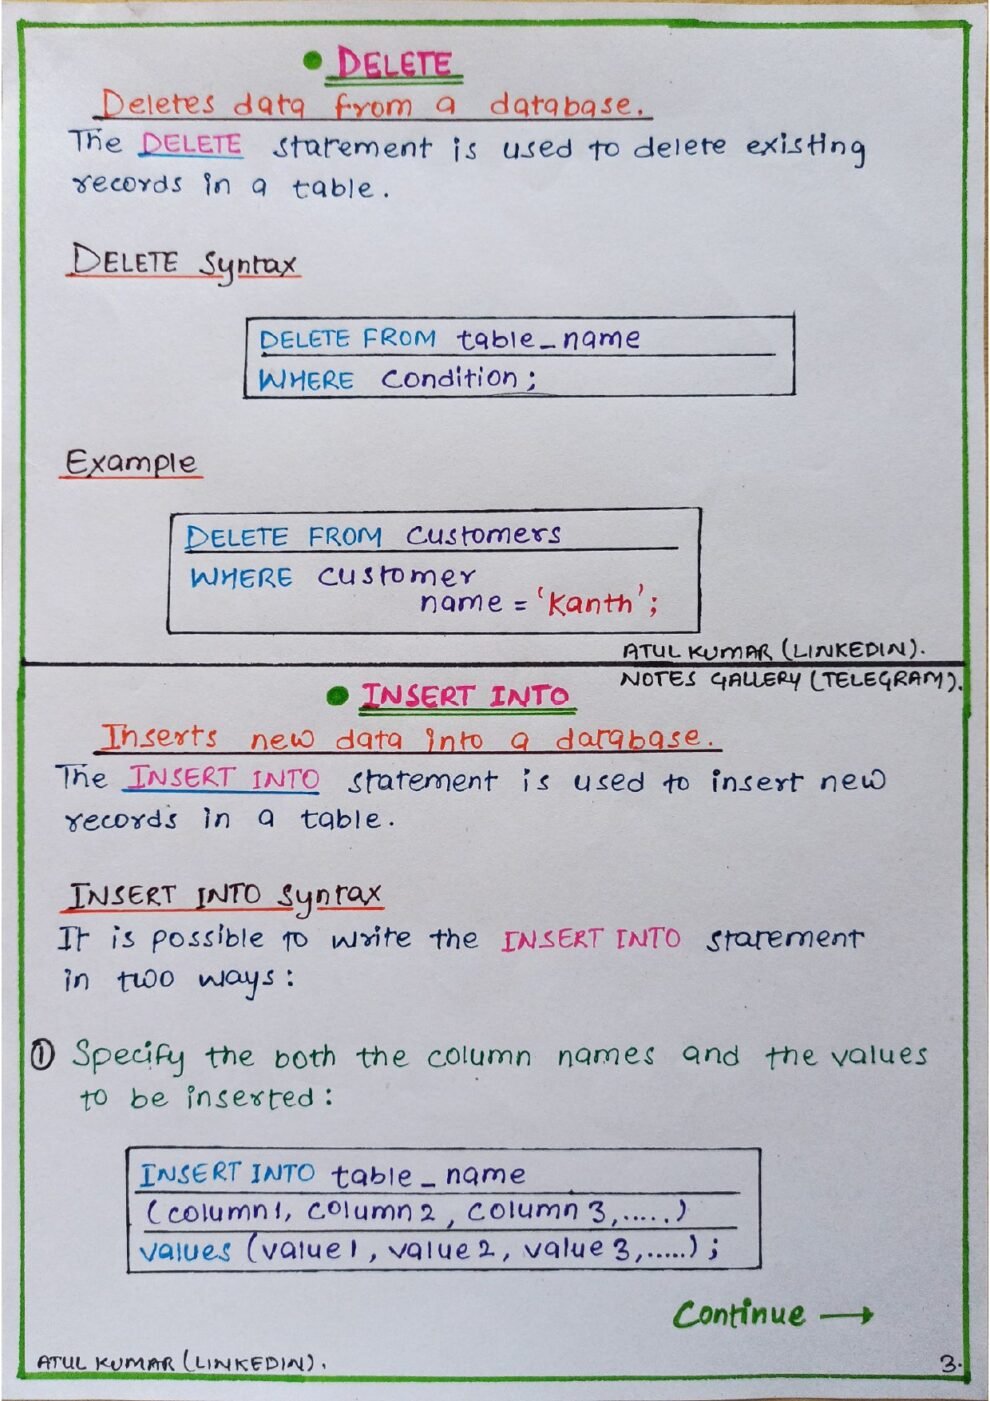 • DELETE
Deletes data from a database.
The DELETE statement is used to delete existing
records in a table.
DELETE Syntax
DELETE FROM table_name
WHERE Condition;
Example
DELETE FROM Customers
WHERE Customer
name = 'Kanth';
ATUL KUMAR (LINKEDIN).
NOTES GALLERY (TELEGRAM).
• INSERT INTO
Inserts new data into a database.
The INSERT INTO statement is used to insert new
records in a table.
INSERT INTO Syntax
It is possible to write the INSERT INTO statement
in two ways:
① Specify the both the column names and the values
to be inserted:
INSERT INTO table_name
(column1, column2, column3,.....)
values (value1, value2, value3,.....);
Continue →
ATUL KUMAR (LINKEDIN).
3.